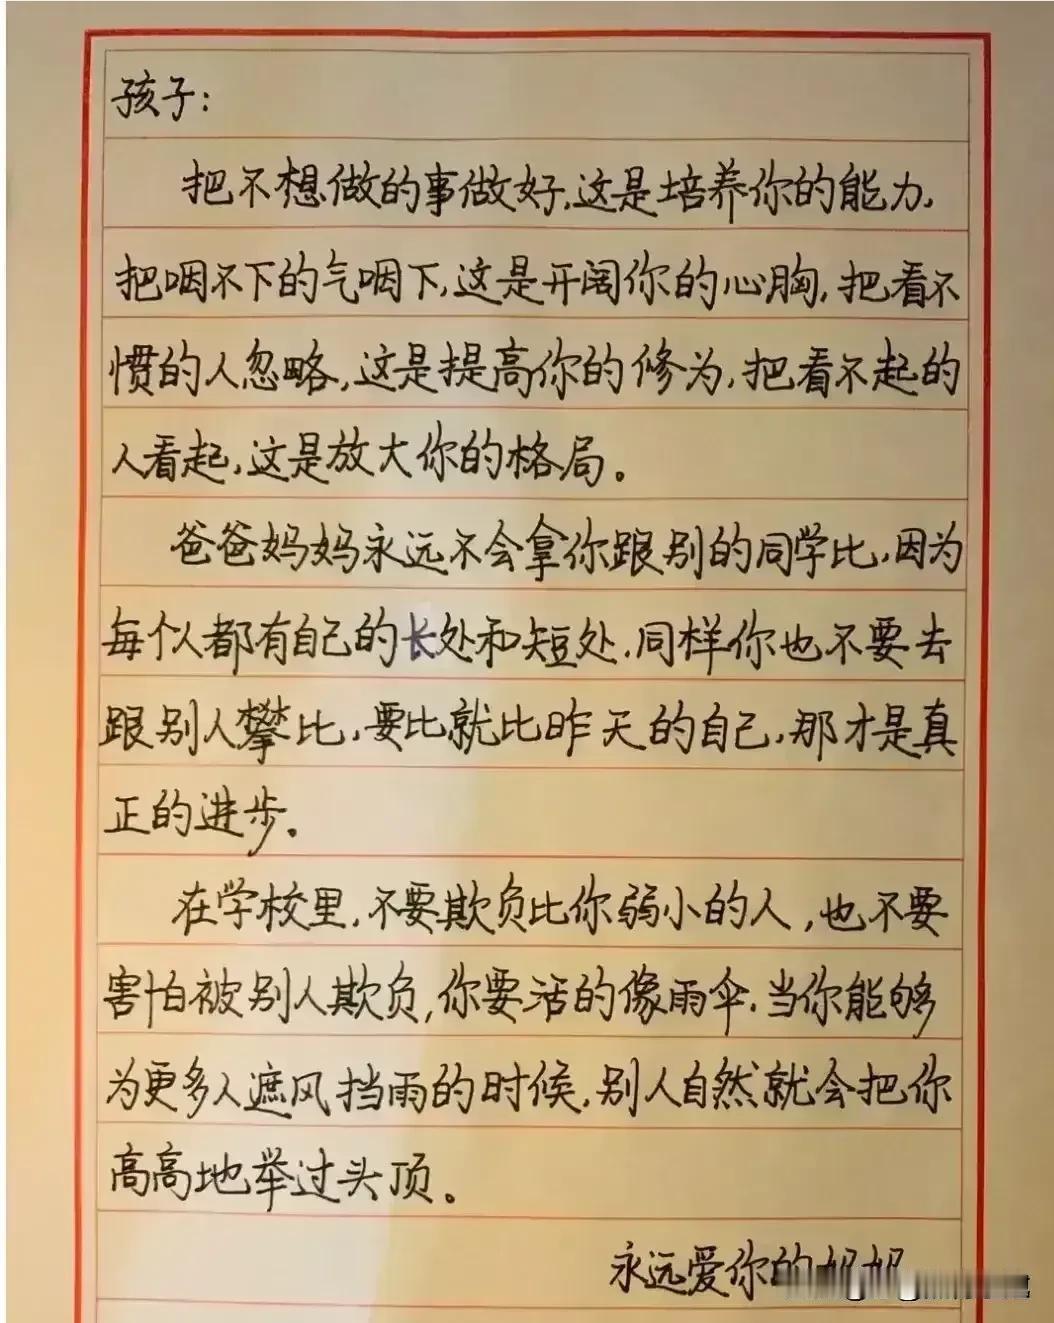 孩子:
把不想做的事做好,这是培养你的能力,
把咽不下的气咽下,这是开阔你的心胸,把看不
惯的人忽略,这是提高你的修为,把看不起的
人看起,这是放大你的格局。
爸爸妈妈永远不会拿你跟别的同学比,因为
每个人都有自己的长处和短处.同样你也不要去
跟别人攀比,要比就比昨天的自己,那才是真
正的进步。
在学校里,不要欺负比你弱小的人,也不要
害怕被别人欺负,你要活的像雨伞.当你能够
为更多人遮风挡雨的时候,别人自然就会把你
高高地举过头顶。
永远爱你的妈妈